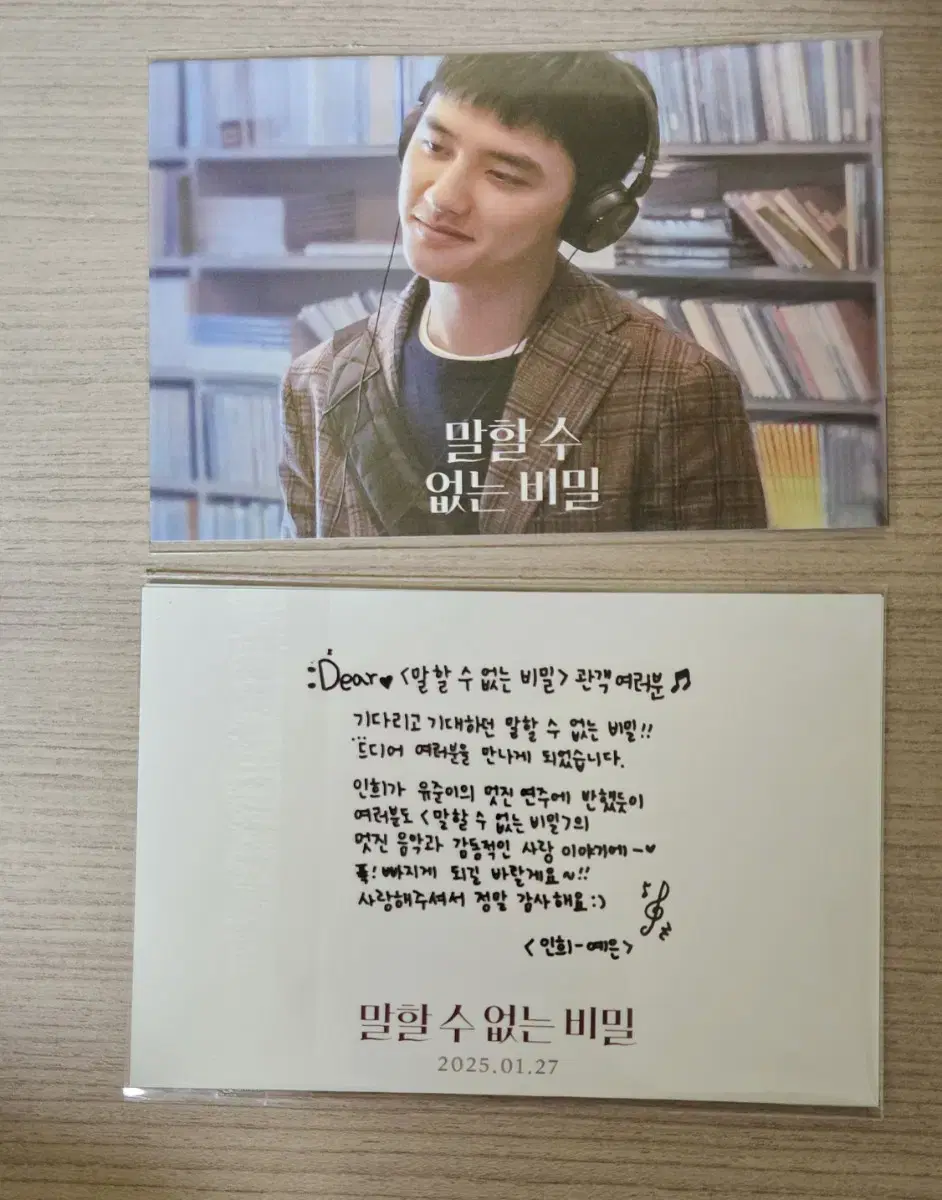 말할 수
없는 비밀
:Dear♥ <말할 수 없는 비밀> 관객 여러분♫
기다리고 기대하던 말할 수 없는 비밀!!
드디어 여러분을 만나게 되었습니다.
인희가 유준이의 멋진 연주에 반했듯이
여러분도 <말할 수 없는 비밀>의
멋진 음악과 감동적인 사랑 이야기에-♥
푹! 빠지게 되길 바랄게요~!!
사랑해주셔서 정말 감사해요:)
<인희-예은>
말할 수 없는 비밀
2025.01.27